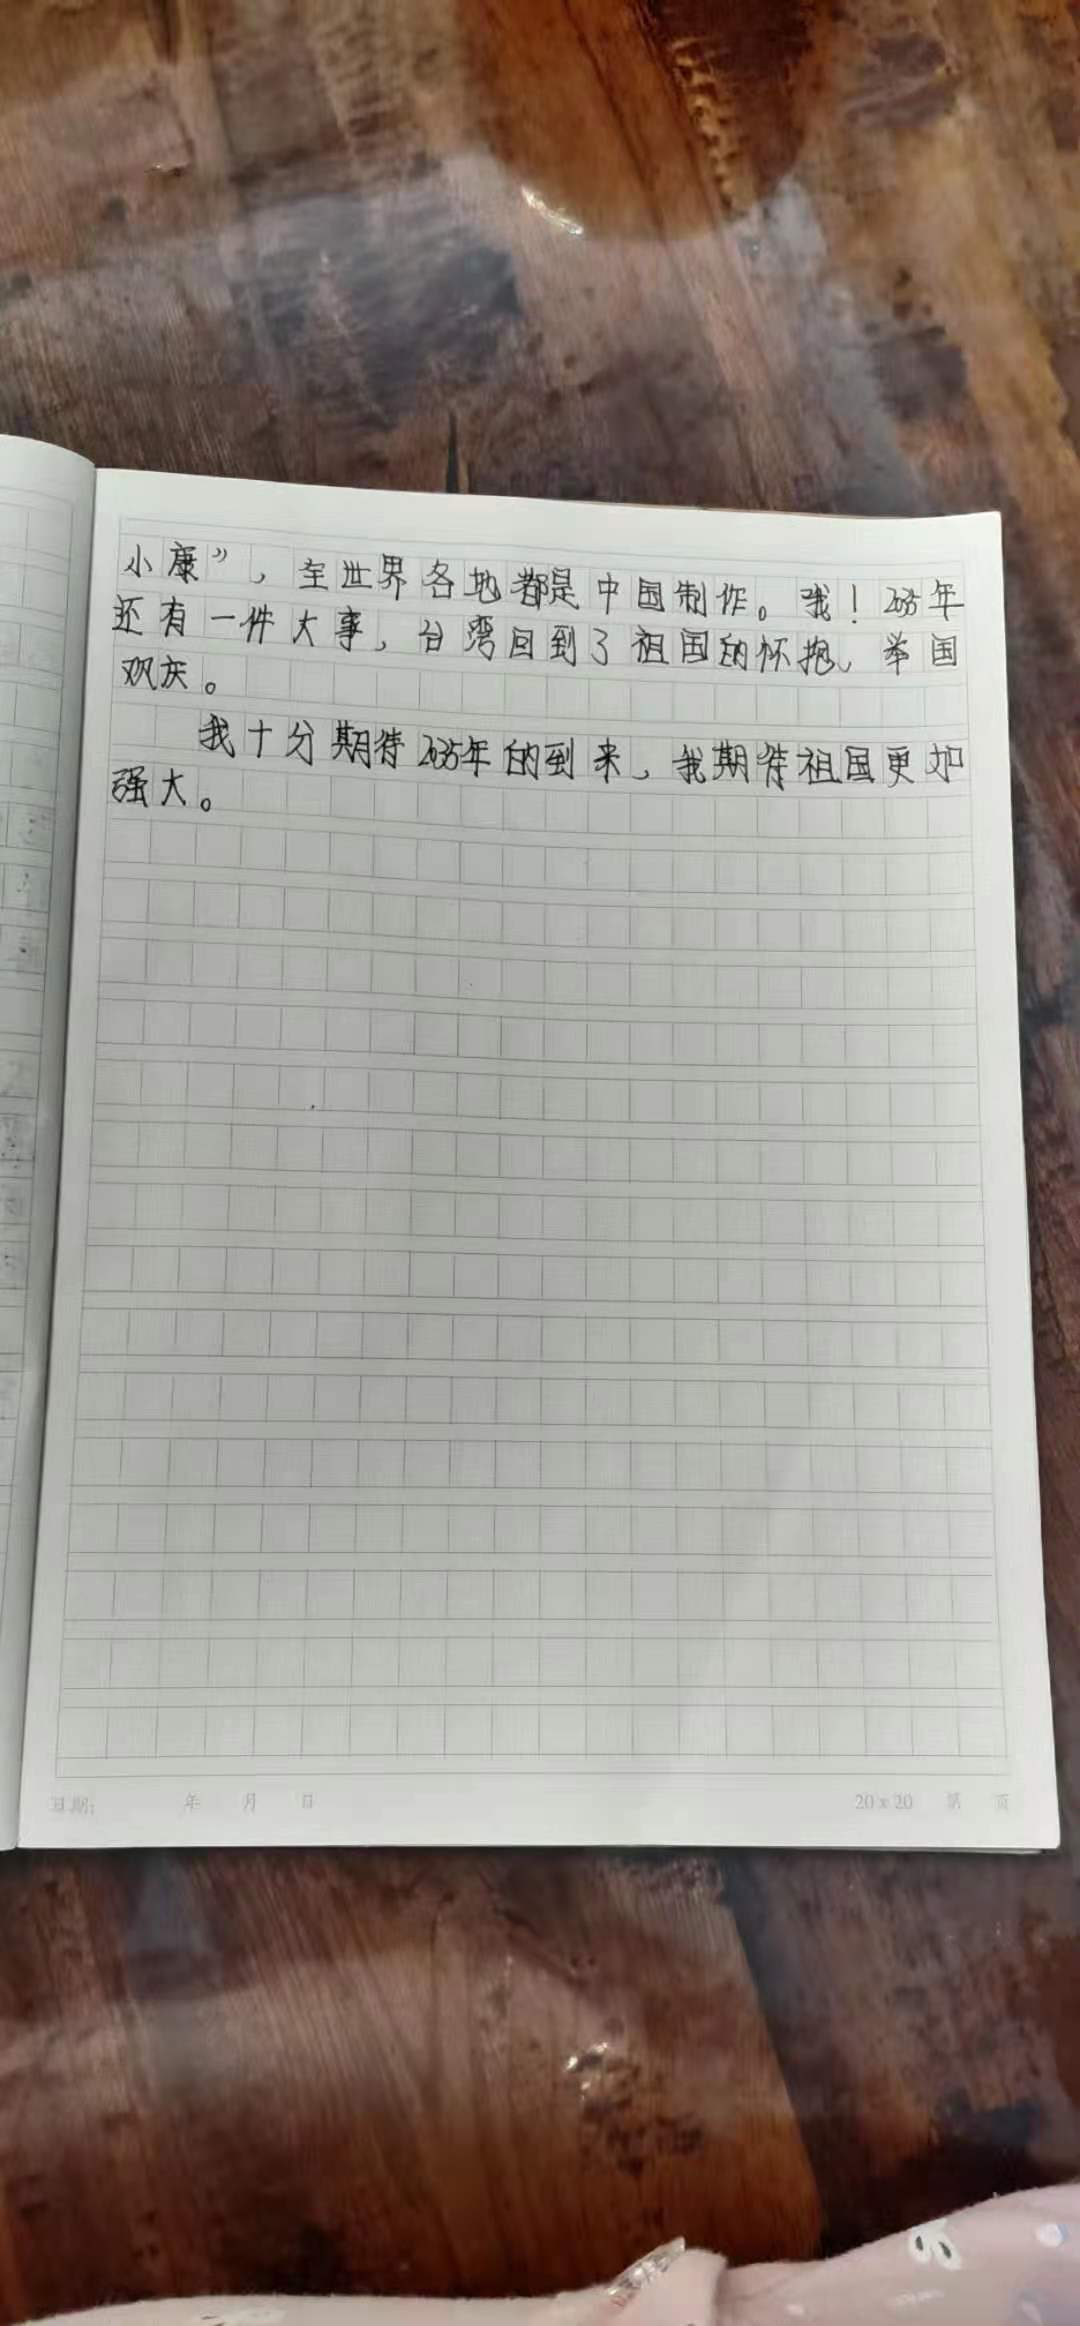 小康”，全世界各地都是中国制作。哦！2035年
还有一件大事，台湾回到了祖国的怀抱，举国
欢庆。
我十分期待2035年的到来，我期待祖国更加
强大。
日期： 年 月 日 20×20 第 页